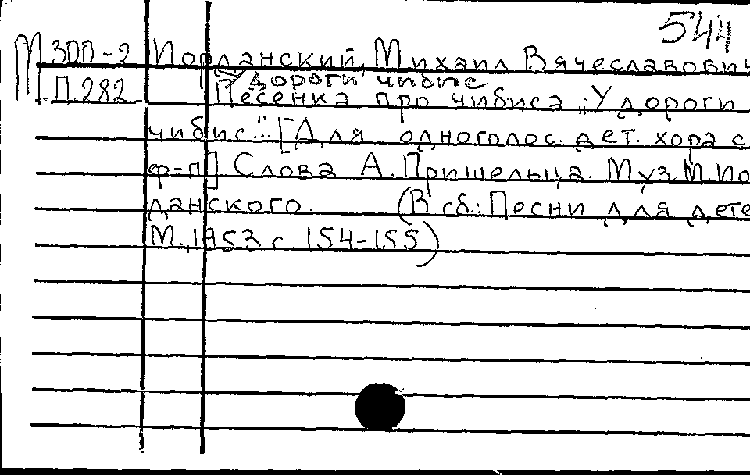 544
М ЗПП-2 Иорданский, Михаил Вячеславович
У дороги чибис
П.282 Песенка про чибиса „У дороги
чибис". [Для одноголос. дет. хора с
ф-п] Слова А. Пришельца. Муз. М. Ио
данского. (В сб.: Песни для дете
М., 1953 с 154-155)